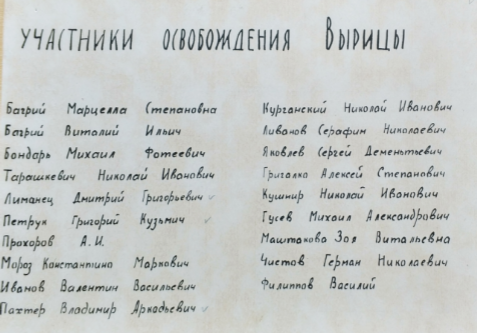 УЧАСТНИКИ ОСВОБОЖДЕНИЯ ВЫРИЦЫ
Багрий Марцелла Степановна
Багрий Виталий Ильич
Бондарь Михаил Фотеевич
Тарашкевич Николай Иванович
Лиманец Дмитрий Григорьевич
Петрук Григорий Кузьмич
Прохоров А.И.
Мороз Константино Маркович
Иванов Валентин Васильевич
Пахтер Владимир Аркадьевич
Курганский Николай Иванович
Ливанов Серафим Николаевич
Яковлев Сергей Дементьевич
Григалко Алексей Степанович
Кушнир Николай Иванович
Гусев Михаил Александрович
Маштакова Зоя Витальевна
Чистов Герман Николаевич
Филиппов Василий